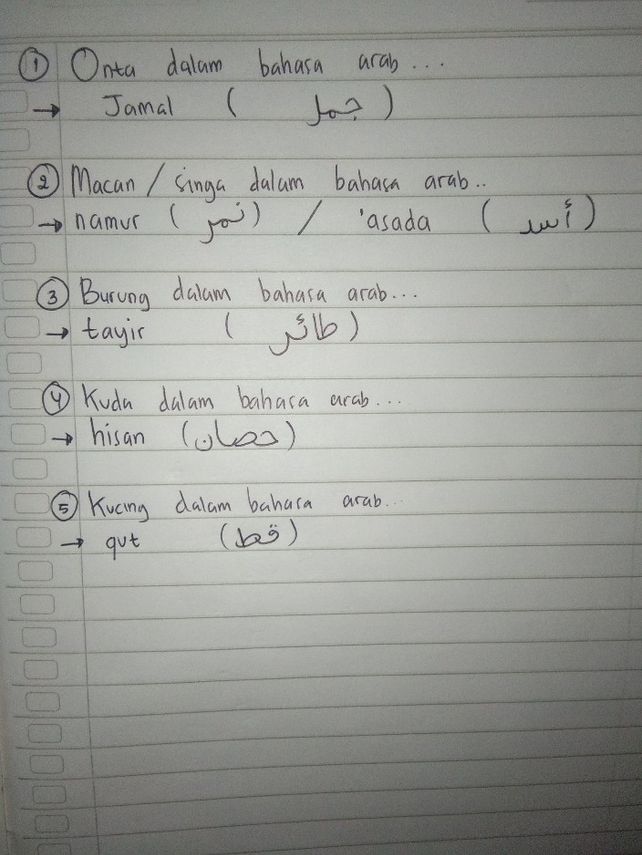 ① Onta dalam bahasa arab ...
→ Jamal ( جمل )
② Macan / singa dalam bahasa arab..
→ namur ( نمر ) / 'asada ( أسد )
③ Burung dalam bahasa arab...
→ tayir ( طائر )
④ Kuda dalam bahasa arab...
→ hisan (حصان)
⑤ Kucing dalam bahasa arab...
→ qut (قط)